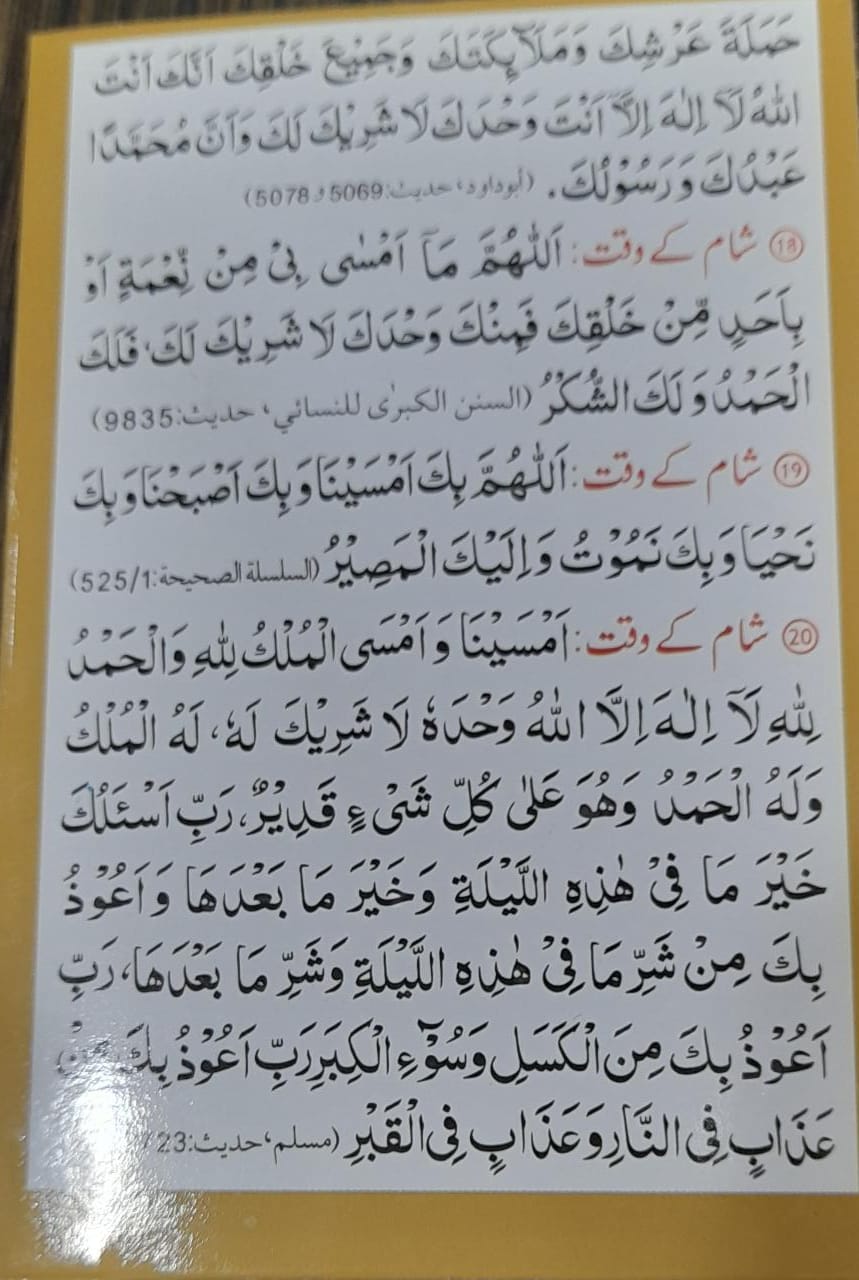 حَمَلَةَ عَرْشِكَ وَمَلَآئِكَتَكَ وَجَمِيْعَ خَلْقِكَ اَنَّكَ اَنْتَ
اللهُ لَآ اِلٰهَ اِلَّآ اَنْتَ وَحْدَكَ لَا شَرِيْكَ لَكَ وَاَنَّ مُحَمَّدًا
عَبْدُكَ وَرَسُوْلُكَ. (أبوداود، حدیث:5069 و 5078)
⑱ شام کے وقت: اَللّٰهُمَّ مَآ اَمْسٰى بِىْ مِنْ نِّعْمَةٍ اَوْ
بِاَحَدٍ مِّنْ خَلْقِكَ فَمِنْكَ وَحْدَكَ لَا شَرِيْكَ لَكَ، فَلَكَ
الْحَمْدُ وَلَكَ الشُّكْرُ (السنن الكبرٰى للنسائي، حدیث:9835)
⑲ شام کے وقت: اَللّٰهُمَّ بِكَ اَمْسَيْنَا وَبِكَ اَصْبَحْنَا وَبِكَ
نَحْيَا وَبِكَ نَمُوْتُ وَاِلَيْكَ الْمَصِيْرُ (السلسلة الصحيحة:525/1)
⑳ شام کے وقت: اَمْسَيْنَا وَاَمْسَى الْمُلْكُ لِلّٰهِ وَالْحَمْدُ
لِلّٰهِ لَآ اِلٰهَ اِلَّا اللهُ وَحْدَهٗ لَا شَرِيْكَ لَهٗ، لَهُ الْمُلْكُ
وَلَهُ الْحَمْدُ وَهُوَ عَلٰى كُلِّ شَىْءٍ قَدِيْرٌ، رَبِّ اَسْئَلُكَ
خَيْرَ مَا فِىْ هٰذِهِ اللَّيْلَةِ وَخَيْرَ مَا بَعْدَهَا وَاَعُوْذُ
بِكَ مِنْ شَرِّ مَا فِىْ هٰذِهِ اللَّيْلَةِ وَشَرِّ مَا بَعْدَهَا، رَبِّ
اَعُوْذُ بِكَ مِنَ الْكَسَلِ وَسُوْٓءِ الْكِبَرِ رَبِّ اَعُوْذُ بِكَ مِنْ
عَذَابٍ فِى النَّارِ وَعَذَابٍ فِى الْقَبْرِ (مسلم، حدیث: